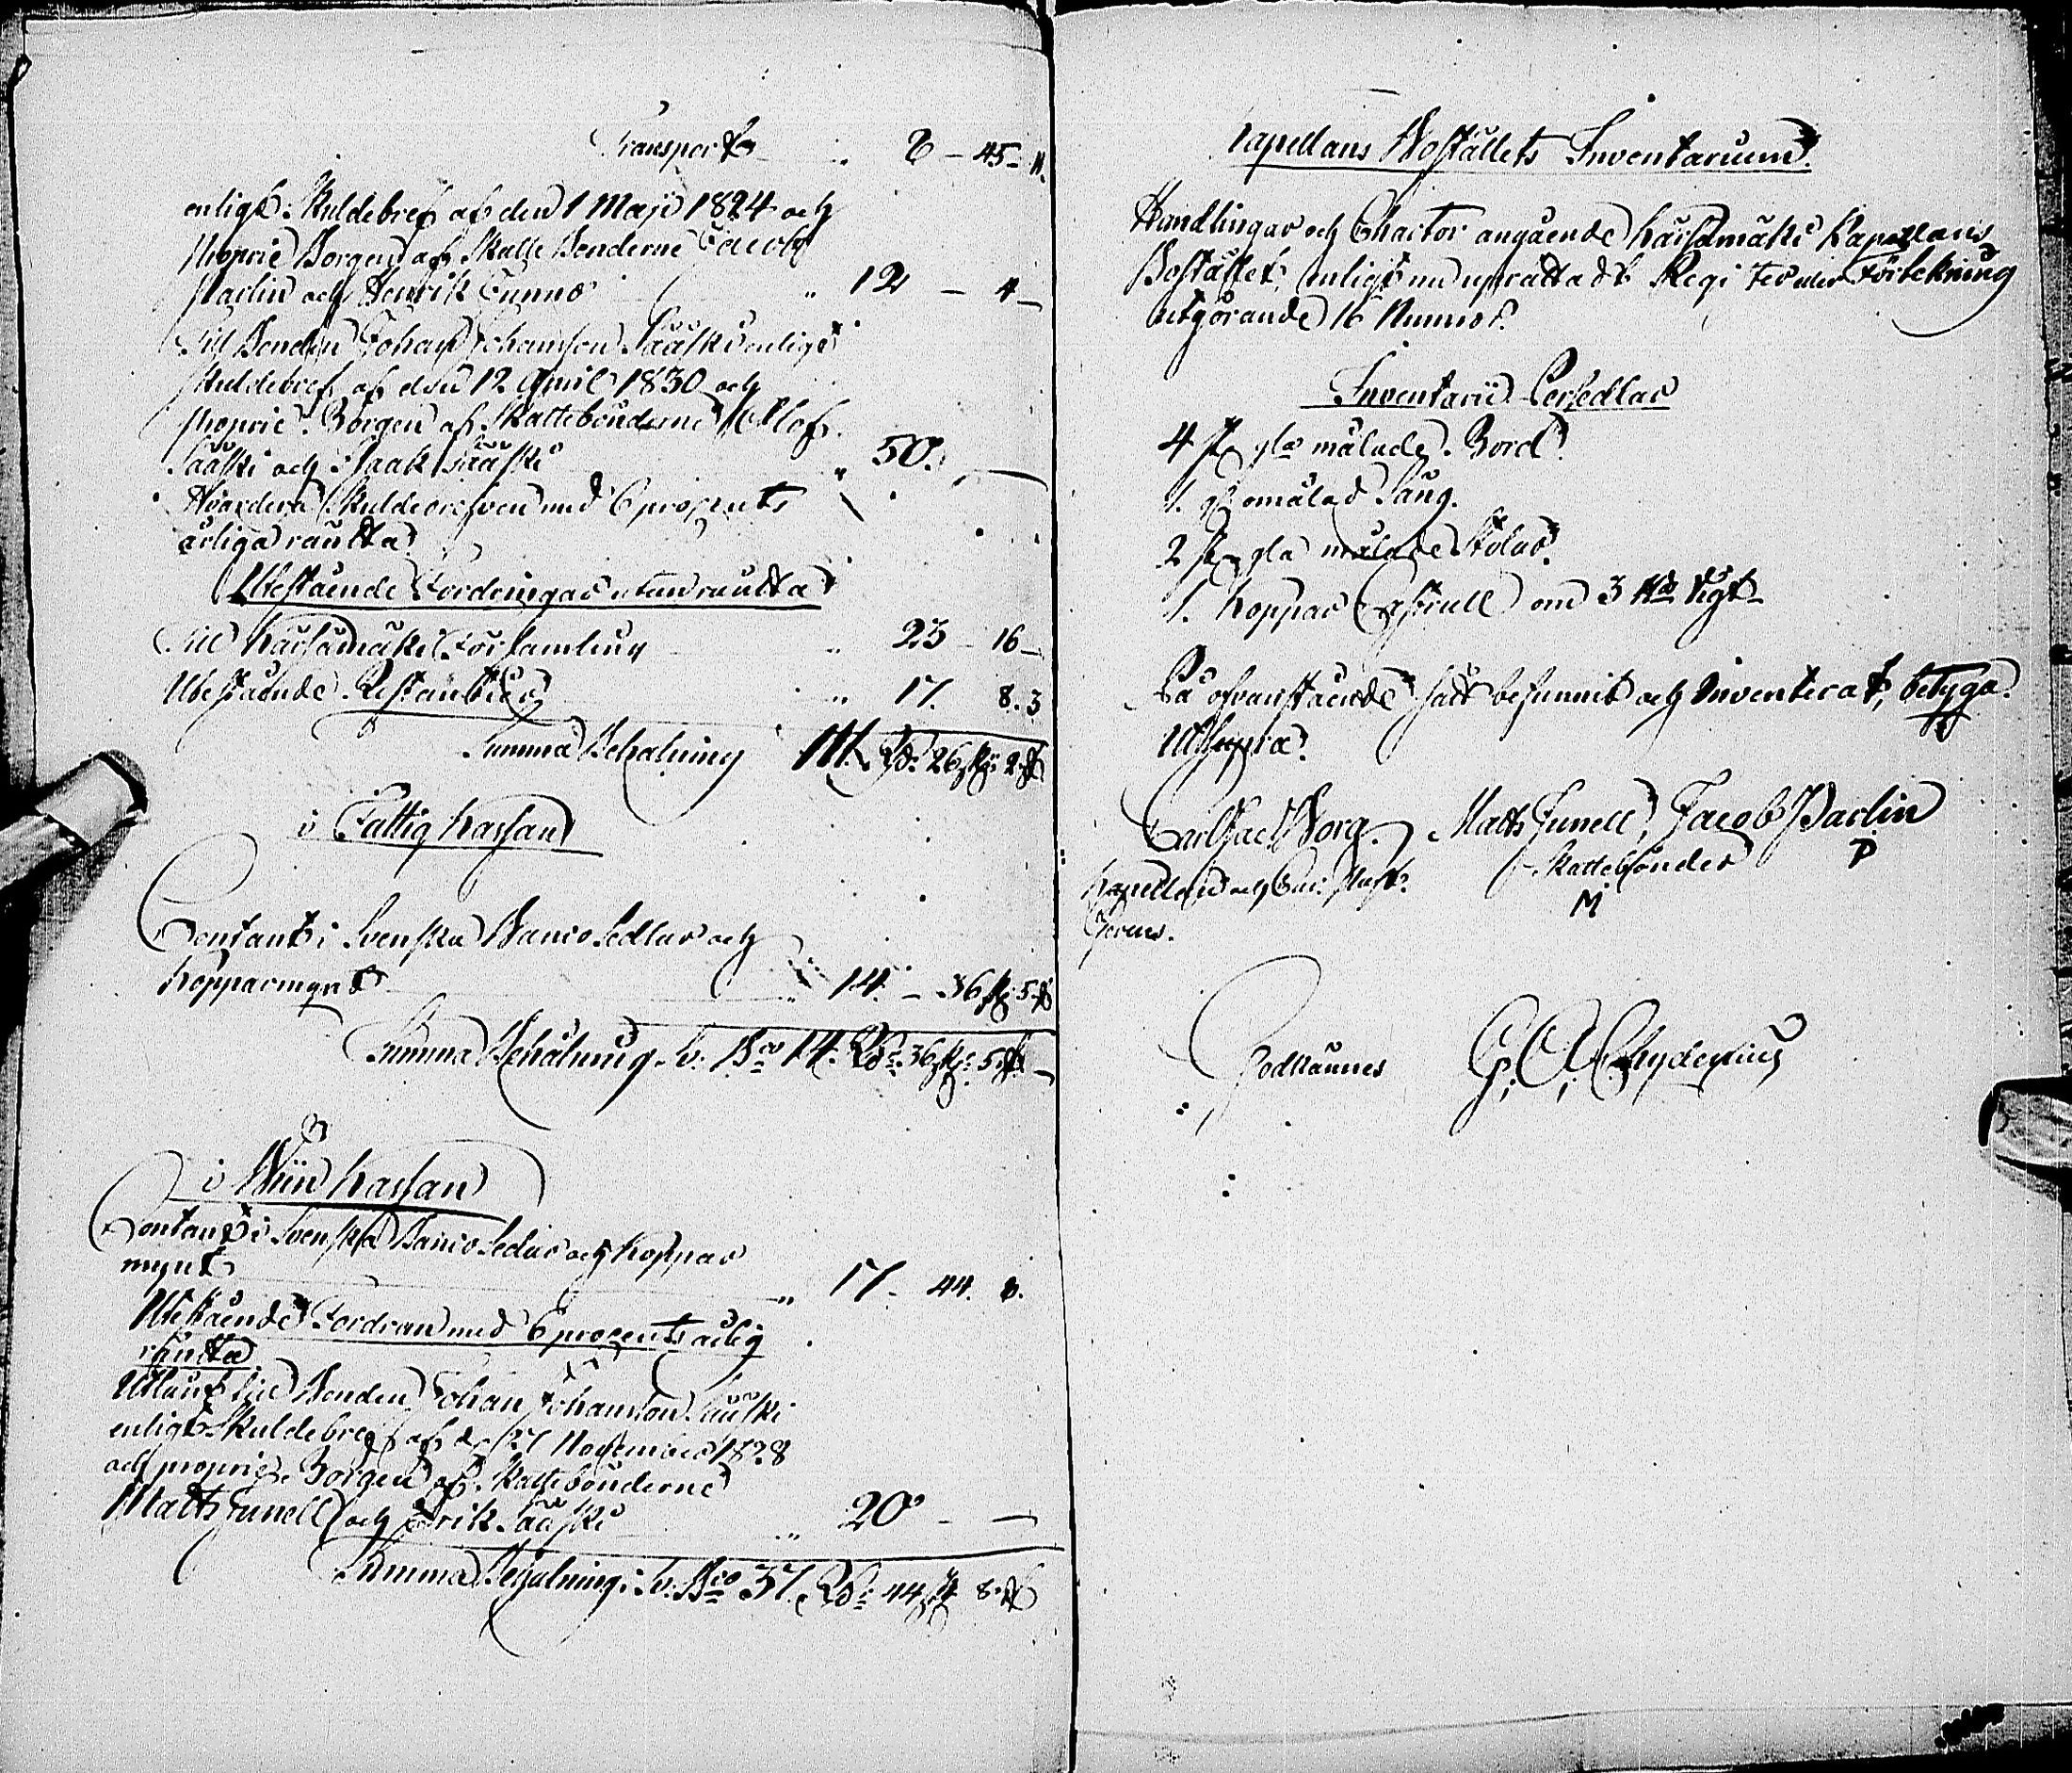 Transport „ 6 – 45 – 11.
enligt Skuldebref af den 1 Maji 1824 och
proprie Borgen af Skatte Bönderne Jacob
Parlin och Henrik Tunno „ 12 – 4 –
Till Bonden Johan Johansson Sääski enligt
Skuldebref af den 12 April 1830 och
proprie Borgen af Skattebönderne Olof
Sääski och Isaak Sääski „ 50. –
Hvardera Skuldebrefven med 6 procents
årliga räntta
Utestående Fordringar utan räntta
Till Kärsämäki Församling „ 23 – 16 –
Utestående Restantier „ 17. 8. 3
Summa Behålning 111. Rd: 26 sk: 2 r
i Fattig Kassan
Contant i Svenska Banco Sedlar och
Kopparmynt „ 14. – 36 sk: 5 r
Summa Behålning Sv: Bco 14. Rd: 36 sk: 5 r –
i Wiin Kassan
Contant i Svenska Banco Sedlar och Koppar
mynt „ 17 – 44. 8.
Utestående Fordran med 6 procents årlig
räntta
Utlånt till Bonden Johan Johansson Sääski
enligt Skuldebref af d. 27 November 1828
och proprie Borgen af Skattebönderne
Matts Junell och Erik Sääski „ 20 – –
Summa Behålning: Sv: Bco 37. Rd: 44 sk 8 r
Kapellans Boställets Inventarium.
Handlingar och Chartor angående Kärsämäki Kapellans
Bostället, enligt nu uprättadt Register eller Förtekning
utgörande 16 Numror.
Inventarii Persedlar
4 st gla målade Bord.
1. gl omålad Säng.
2 st gla målade Stolar.
1. Koppar Castrull om 3 vigt
På ofvanstående sätt befunnit och Inventerat, betyga.
Ut Supra.
Carl Borg. Matts Junell, Jacob Parlin
Kapellan och Skattebönder P
M
Gerens.
Godkännes G. A. Chydenius